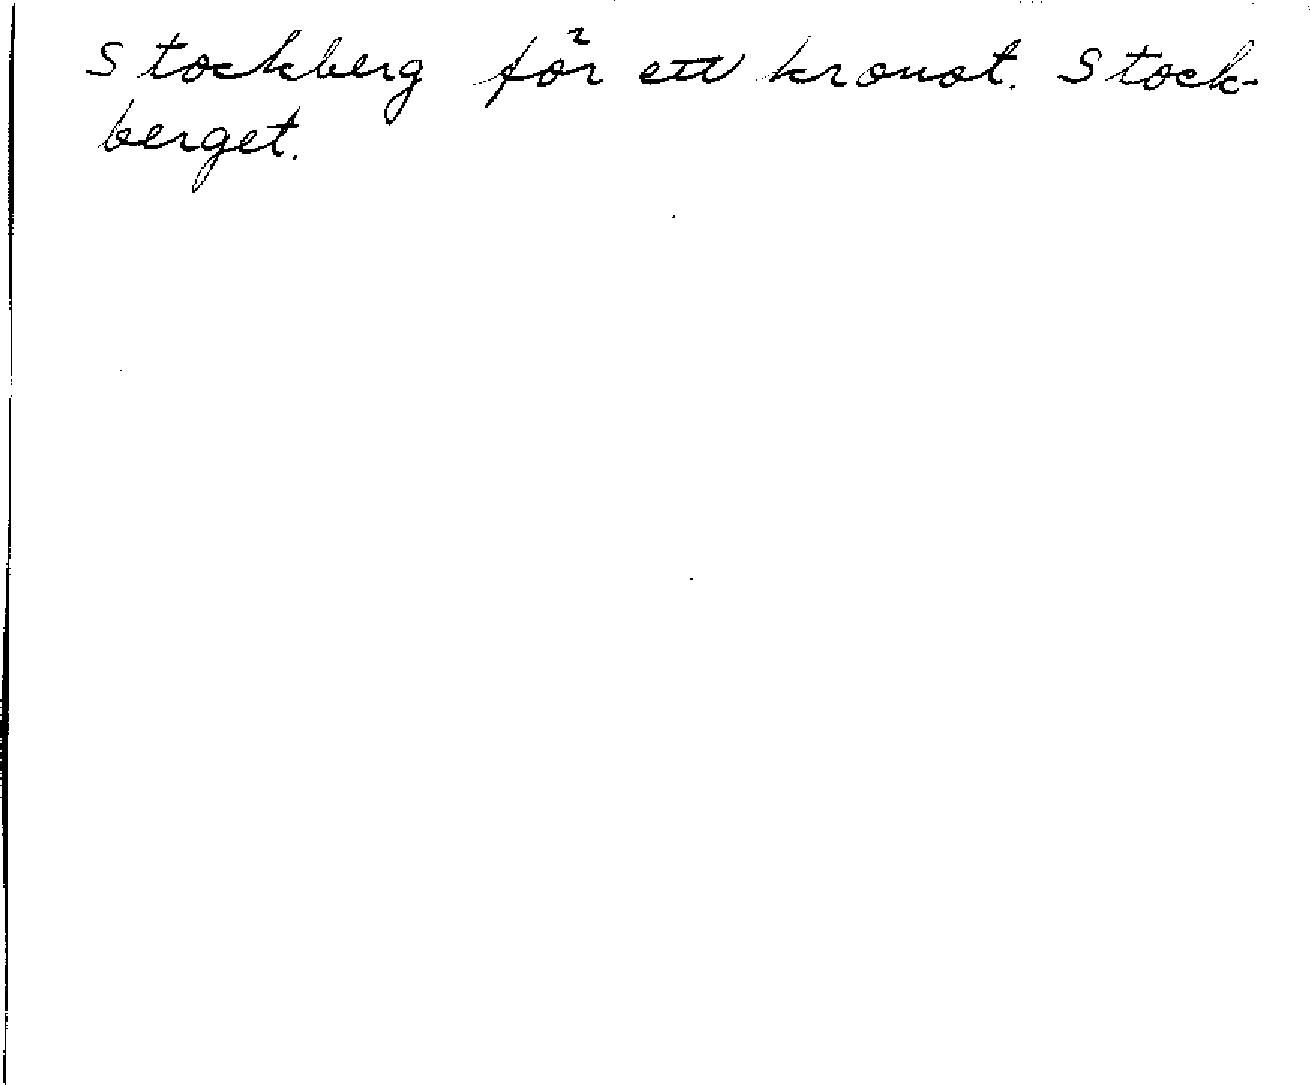 Stockberg för ett kronot. Stock-
berget.